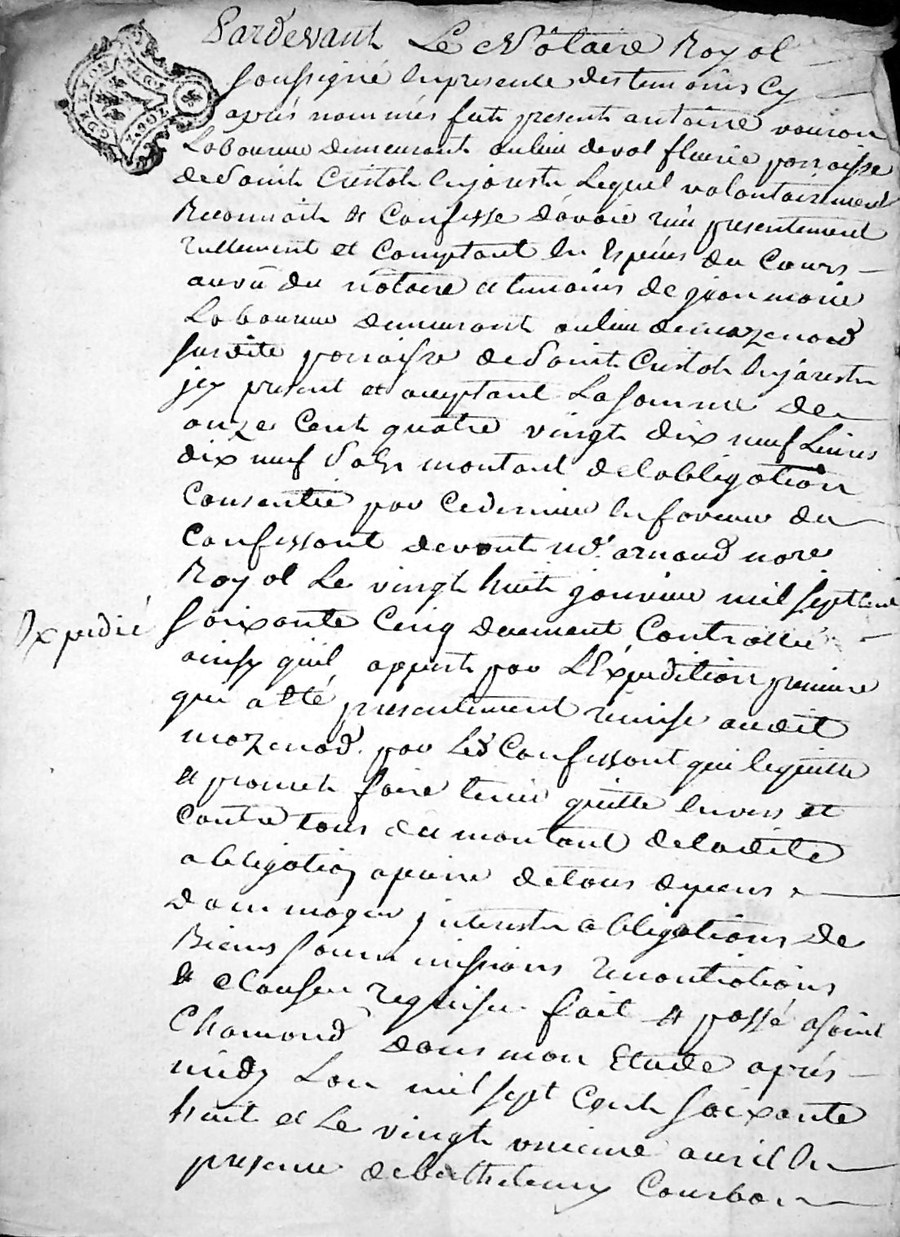 Pardevant Le Notaire Royal
soussigné en presence des temoins cy
après nommés fut present antoine
Laboureur demeurant au lieu de val fleurie parroisse
de saint Cristoh en jarest Lequel volontairement
Reconnait et Confesse d'avoir reçu presentement
rellement et Comptant en Espéces du Cours
au vû du notaire et temoins de jean marie
Laboureur demeurant au lieu de mazenod
susdite parroisse de saint Cristoh en jarest
jcy present et acceptant La somme de
onze Cent quatre vingt dix neuf Livres
dix neuf sols montant de l'obligation
Consentie par Cedernier en faveur du
Confessant devant me. arnaud nore
Royal Le vingt huit janvier mil sept Cent
Expedié
soixante Cinq deuement Controllée
ainsy quil appert par L'Expedition premiere
qui a été presentement remise audit
mazenod. par Led Confessant qui le quitte
et promet faire tenir quitte envers et
contre tous du montant de ladite
obligation apeine de tous depens
dommages jnterests obligations de
Biens soumissions renontiations
et Clauses requises fait et passé a saint
Chamond dans mon Etude après
midy Lan mil sept Cent soixante
huit et Le vingt unieme avril En
presence de barthelemy Courbon